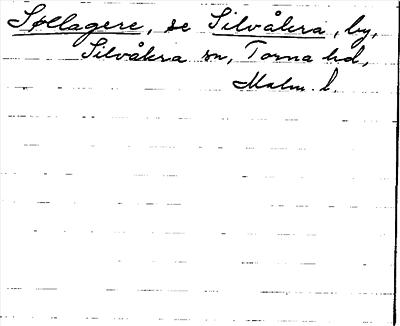 Søllagere, se Silvåkra, by,
Silvåkra sn, Torna hd,
Malm. l.